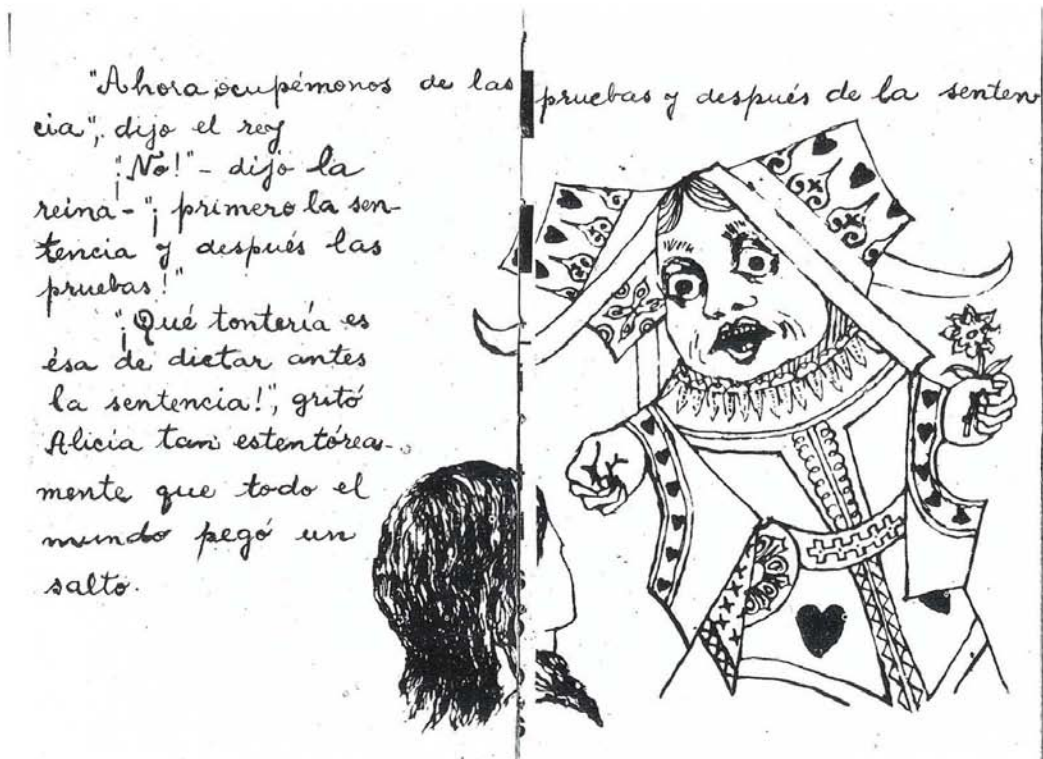 "Ahora ocupémonos de las pruebas y después de la senten
cia", dijo el rey
"¡No!" - dijo la
reina - "¡primero la sen-
tencia y después las
pruebas!"
"¡Qué tontería es
ésa de dictar antes
la sentencia!", gritó
Alicia tan estentórea-
mente que todo el
mundo pegó un
salto.